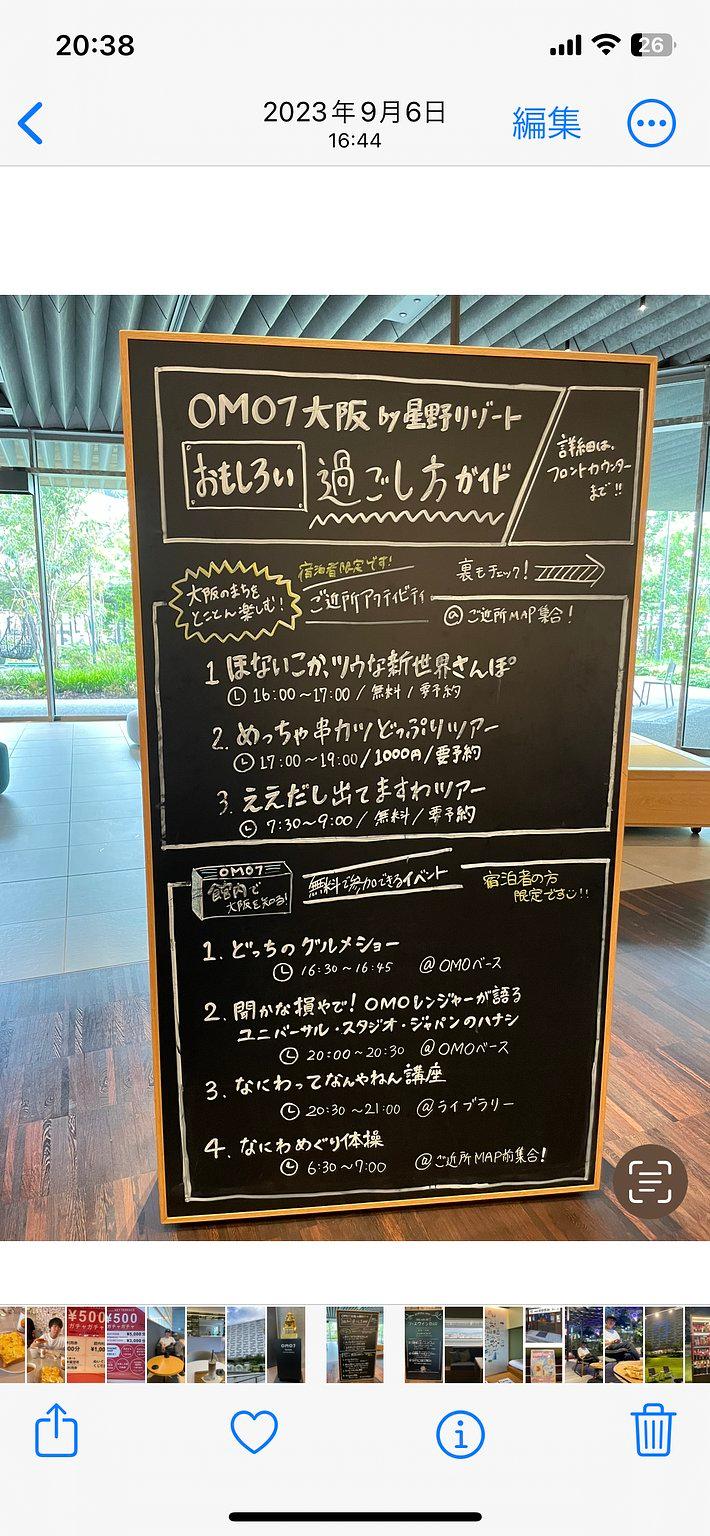 20:38
26
2023年9月6日
16:44
編集
OMO7大阪 by 星野リゾート
おもしろい 過ごし方ガイド
詳細は、
フロントカウンター
まで!!
大阪のまちを
とことん楽しむ!
宿泊者限定です!
ご近所アクティビティ
裏もチェック!
@ご近所MAP集合!
1 ほないこか、ツウな新世界さんぽ
16:00～17:00 / 無料 / 要予約
2. めっちゃ串カツどっぷりツアー
17:00～19:00 / 1000円 / 要予約
3. ええだし出てますわツアー
7:30～9:00 / 無料 / 要予約
OMO7
館内で
大阪を知る!
無料で参加できるイベント
宿泊者の方
限定です!!
1. どっちのグルメショー
16:30～16:45 @OMOベース
2. 聞かな損やで! OMOレンジャーが語る
ユニバーサル・スタジオ・ジャパンのハナシ
20:00～20:30 @OMOベース
3. なにわってなんやねん講座
20:30～21:00 @ライブラリー
4. なにわめぐり体操
6:30～7:00 @ご近所MAP前集合!
¥500
¥500
OMO7